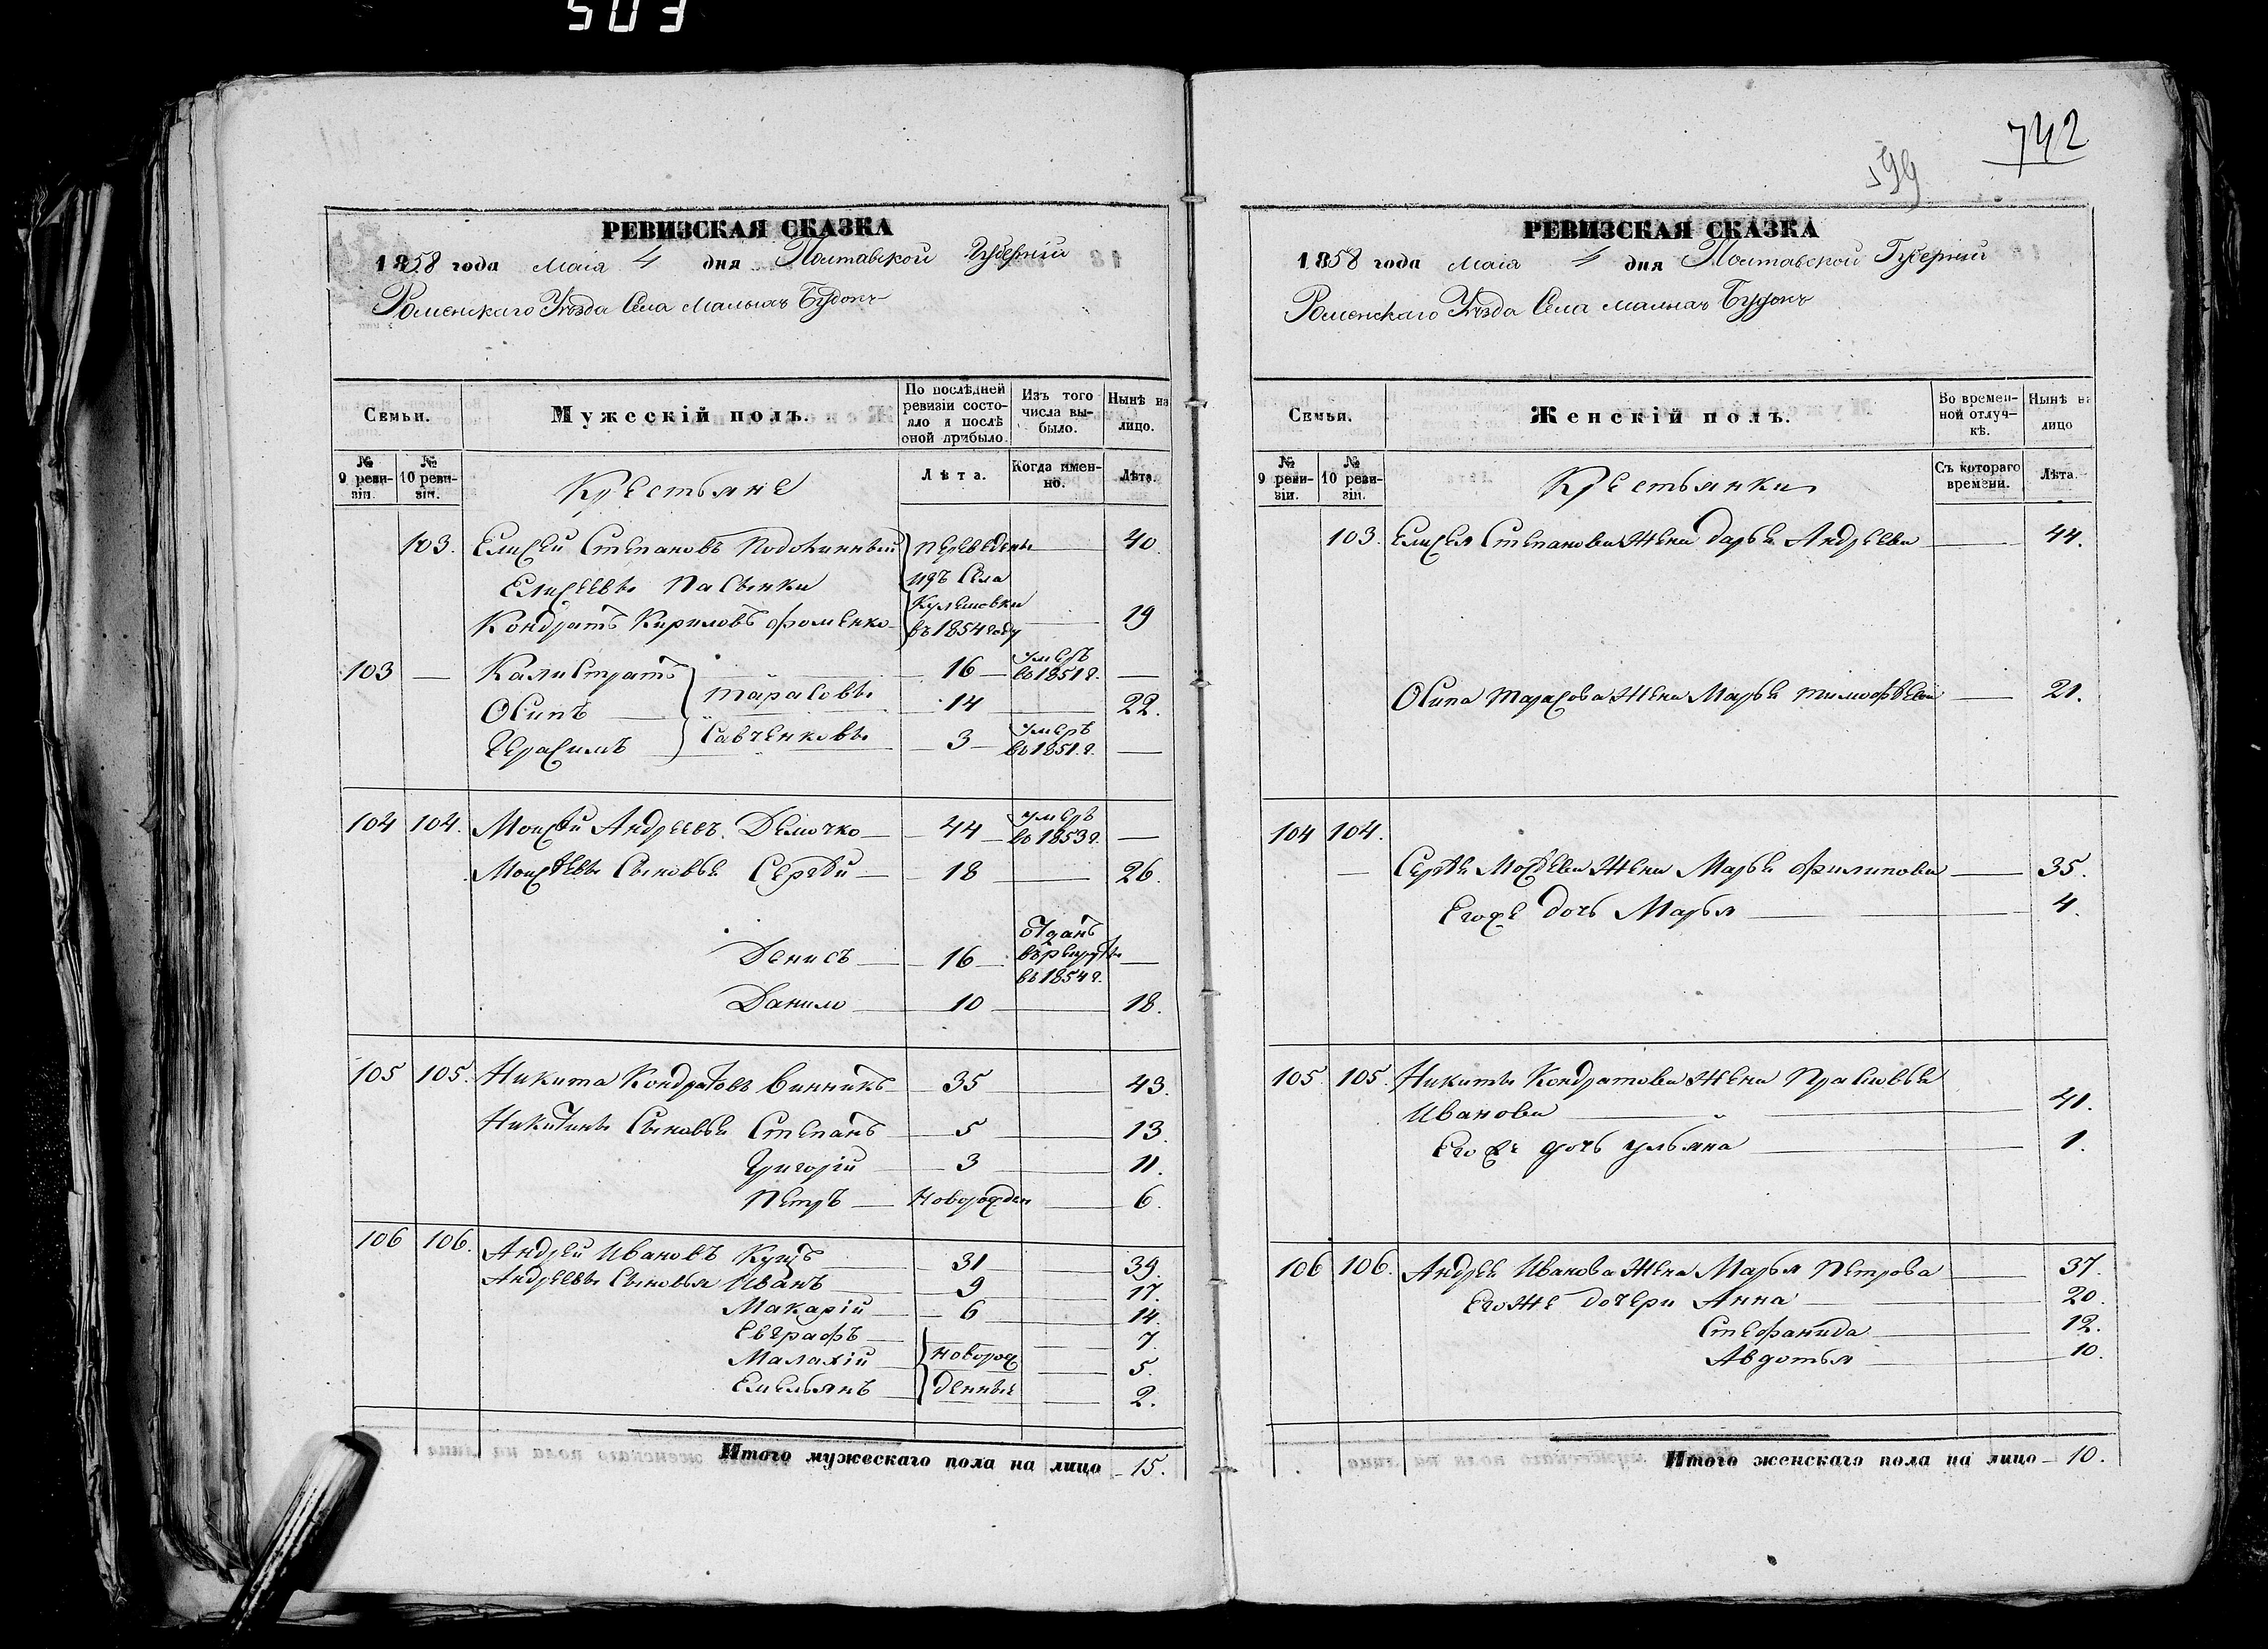 503
РЕВИЗСКАЯ СКАЗКА
1858 года Маія 4 дня Полтавской Губерніи
Роменскаго Уѣзда Села Малыхъ Будокъ
Семьи. Мужескій полъ. По послѣдней ревизіи состояло и послѣ оной прибыло. Изъ того числа выбыло. Нынѣ на лицо.
№ 9 ревизіи. № 10 ревизіи. Крестьяне Лѣта. Когда именно. Лѣта.
103. Елисей Степановъ 40.
Елисеевы пасынки
Кондратъ Кириловъ Фоменко 19
переведены изъ Села Кулешовки въ 1854 году
103 — Калистратъ 16 умеръ въ 1851 г. —
Осипъ Тарасовы 14 22.
Герасимъ Савченковы 3 умеръ въ 1851 г. —
104 104. Моисѣй Андреевъ Демочко 44 умеръ въ 1853 г. —
Моисѣевы Сыновья Сергѣй 18 26.
Денисъ 16 отданъ въ рекруты въ 1854 г. —
Данило 10 18.
105 105. Никита Кондратовъ Винникъ 35 43.
Никитины Сыновья Степанъ 5 13.
Григорій 3 11.
Петръ Новорожден 6.
106 106. Андрей Ивановъ Кущъ 31 39.
Андреевы Сыновья Иванъ 9 17.
Макарій 6 14.
Евграфъ 7.
Малахій новорож 5.
Емельянъ денные 2.
Итого мужескаго пола на лицо 15.
742
599
РЕВИЗСКАЯ СКАЗКА
1858 года Маія 4 дня Полтавской Губерніи
Роменскаго Уѣзда Села Малыхъ Будокъ
Семьи. Женскій полъ. Во временной отлучкѣ. Нынѣ на лицо
№ 9 ревизіи. № 10 ревизіи. Крестьянки Съ котораго времени. Лѣта.
103. Елисея Степанова Жена Дарья Андреева 44.
Осипа Тарасова Жена Марья Тимофѣева 21.
104 104.
— Сергѣя Мосѣева Жена Марья Филипова 35.
Егоже дочь Марья 4.
105. 105. Никиты Кондратова Жена Прасковья
Иванова 41.
Егоже дочь Ульяна 1.
106 106. Андрея Иванова Жена Марья Петрова 37.
Егоже дочери Анна 20.
Стефанида 12.
Авдотья 10.
Итого женскаго пола на лицо 10.